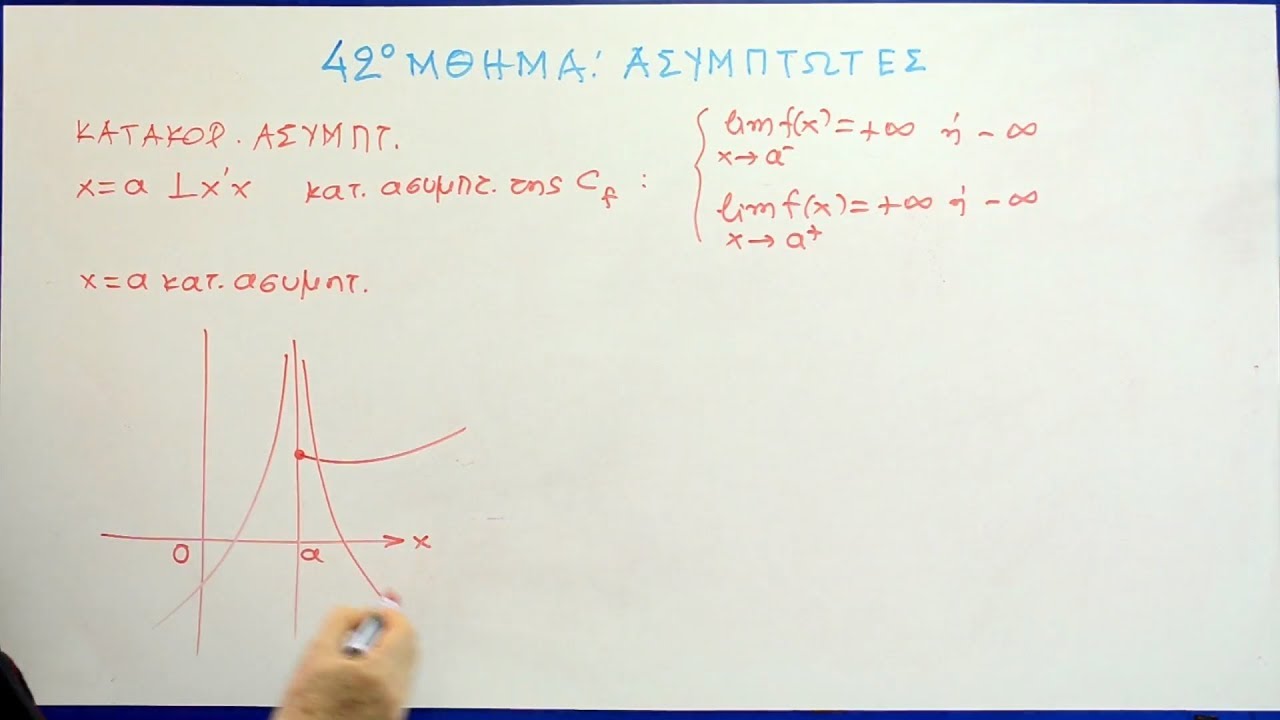 42° ΜΘΗΜΑ: ΑΣΥΜΠΤΩΤΕΣ
ΚΑΤΑΚΟΡ. ΑΣΥΜΠΤ.
x=α ⊥x'x κατ. ασυμπτ. της C_f :
lim f(x)=+∞ ή -∞
x→α⁻
lim f(x)=+∞ ή -∞
x→α⁺
x=α κατ. ασυμπτ.
Ο α x